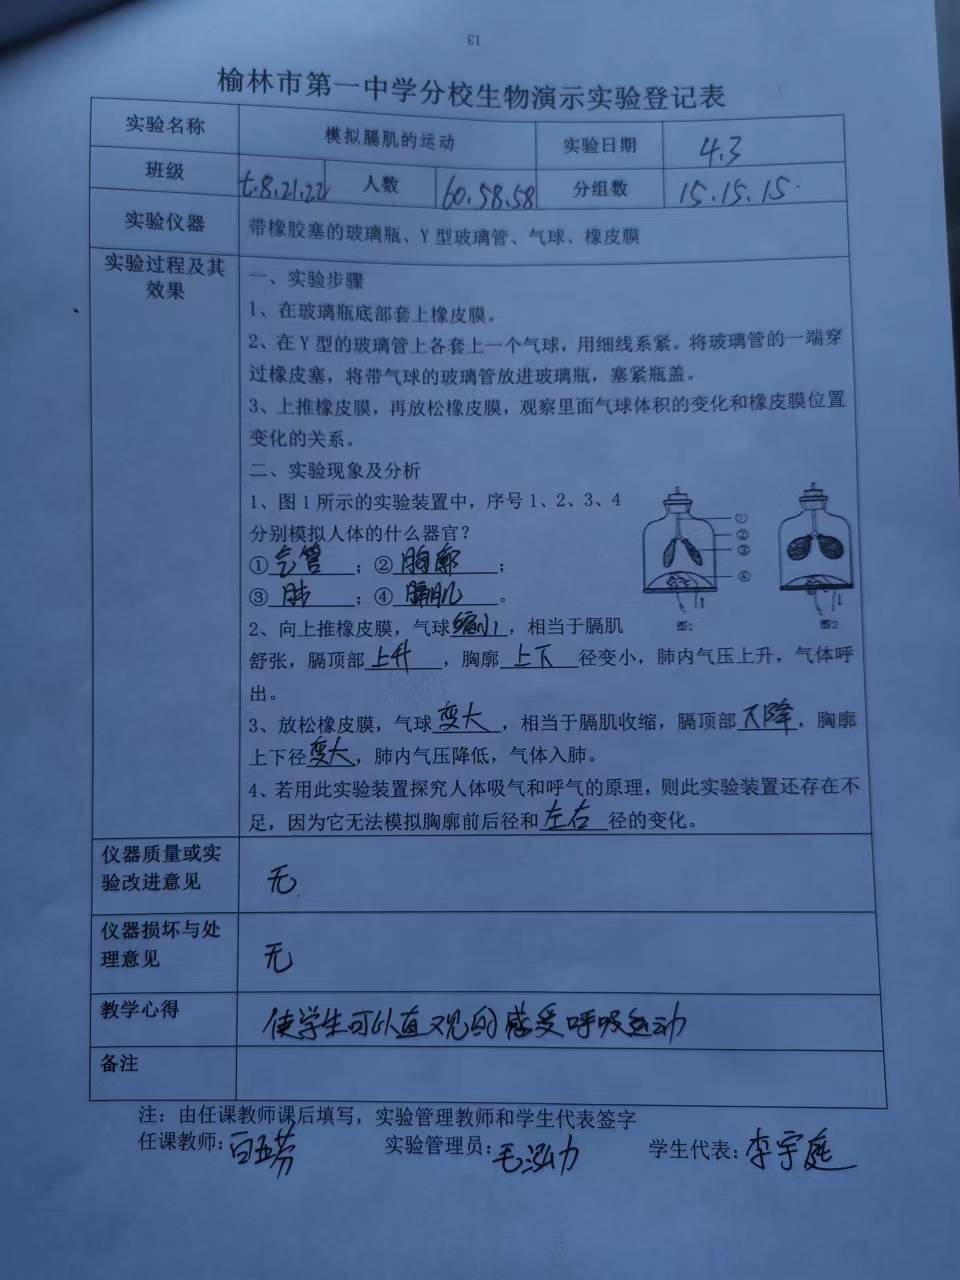 13
榆林市第一中学分校生物演示实验登记表
实验名称 模拟膈肌的运动 实验日期 4.3
班级 7.8.21.22 人数 60.58.58 分组数 15.15.15.
实验仪器 带橡胶塞的玻璃瓶、Y型玻璃管、气球、橡皮膜
实验过程及其
效果
一、实验步骤
1、在玻璃瓶底部套上橡皮膜。
2、在Y型的玻璃管上各套上一个气球，用细线系紧。将玻璃管的一端穿
过橡皮塞，将带气球的玻璃管放进玻璃瓶，塞紧瓶盖。
3、上推橡皮膜，再放松橡皮膜，观察里面气球体积的变化和橡皮膜位置
变化的关系。
二、实验现象及分析
1、图1所示的实验装置中，序号1、2、3、4
分别模拟人体的什么器官？
①气管；②胸廓；
③肺；④膈肌。
① ② ③ ④
图1 图2
2、向上推橡皮膜，气球缩小，相当于膈肌
舒张，膈顶部上升，胸廓上下径变小，肺内气压上升，气体呼
出。
3、放松橡皮膜，气球变大，相当于膈肌收缩，膈顶部下降，胸廓
上下径变大，肺内气压降低，气体入肺。
4、若用此实验装置探究人体吸气和呼气的原理，则此实验装置还存在不
足，因为它无法模拟胸廓前后径和左右径的变化。
仪器质量或实
验改进意见 无
仪器损坏与处
理意见 无
教学心得 使学生可以直观的感受呼吸运动
备注
注：由任课教师课后填写，实验管理教师和学生代表签字
任课教师：白亚芬 实验管理员：毛泓力 学生代表：李宇庭